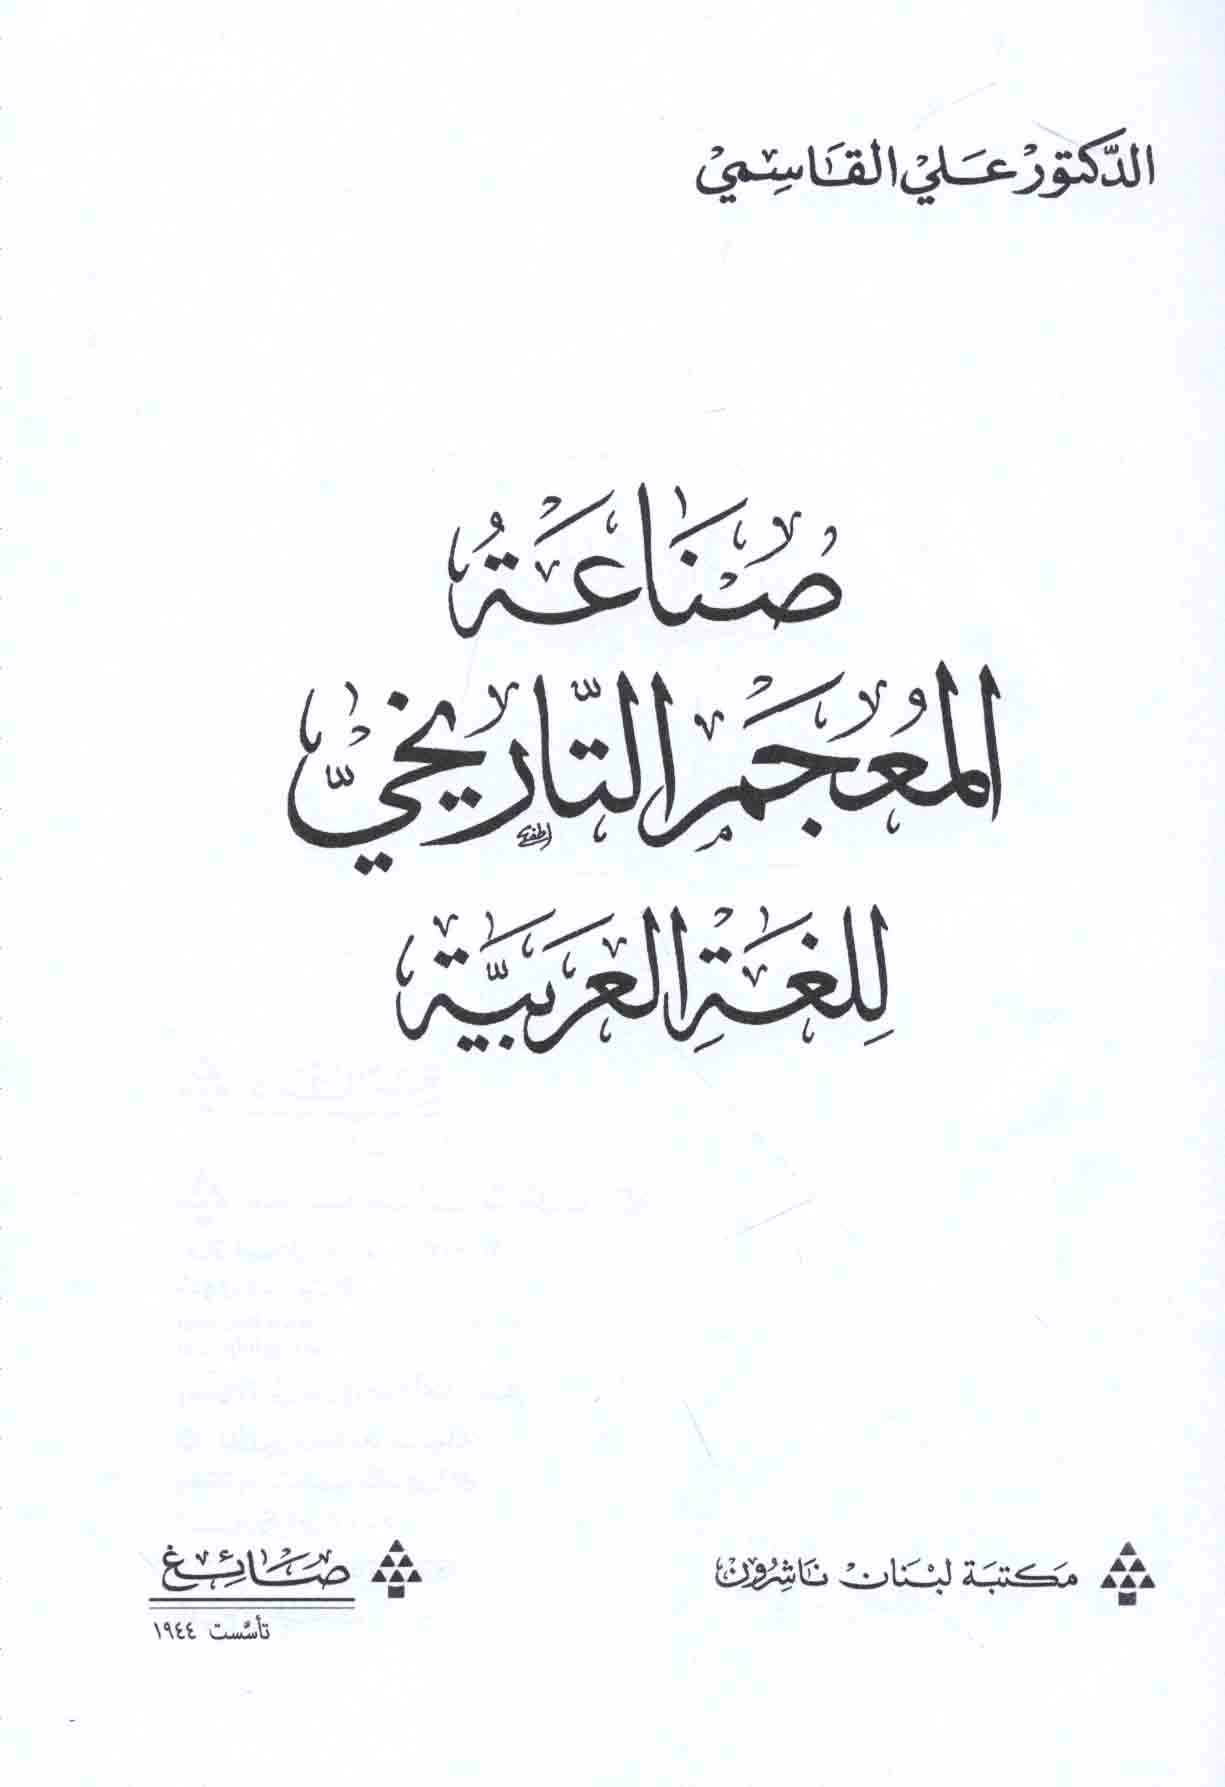 الدّكتور علي القاسمي
صِنَاعَةُ
المُعْجَمِ التَّاريخيّ
لِلغَةِ العَرَبيَّة
مكتبة لبنان ناشرون
صَائِغ
تأسّست ١٩٤٤